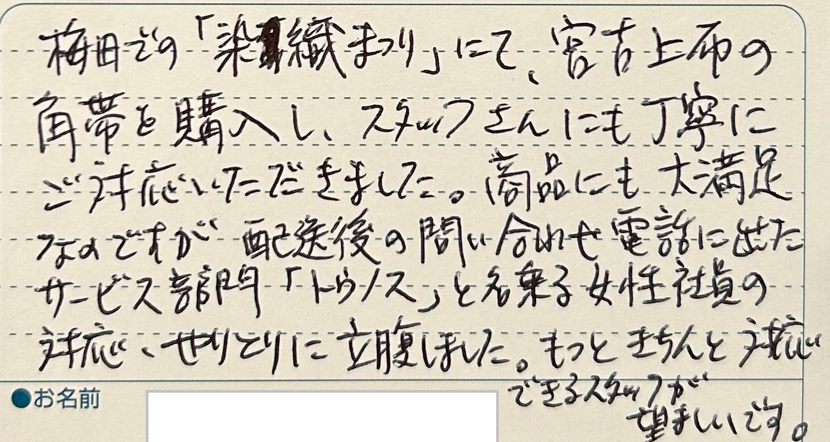 梅田での「染織まつり」にて、宮古上布の
角帯を購入し、スタッフさんにも丁寧に
ご対応いただきました。商品にも大満足
なのですが配送後の問い合わせ電話に出た
サービス部門「トウノス」と名乗る女性社員の
対応、やりとりに立腹しました。もっときちんと対応
できるスタッフが
望ましいです。
●お名前